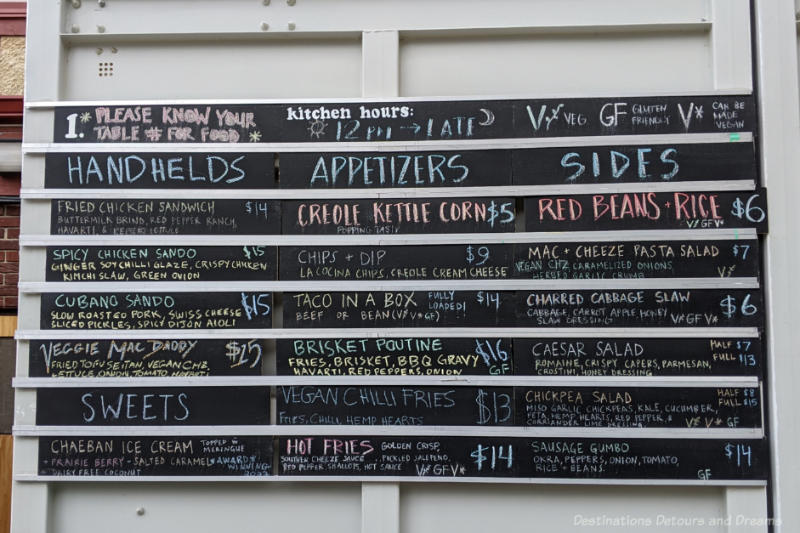 1. PLEASE KNOW YOUR
TABLE # FOR FOOD
kitchen hours:
12 PM → LATE
V VEG GF GLUTEN FRIENDLY V* CAN BE MADE VEGAN
HANDHELDS
FRIED CHICKEN SANDWICH $14
BUTTERMILK BRIND, RED PEPPER RANCH,
HAVARTI, & LETTUCE
SPICY CHICKEN SANDO $15
GINGER SOY CHILLI GLAZE, CRISPY CHICKEN
KIMCHI SLAW, GREEN ONION
CUBANO SANDO $15
SLOW ROASTED PORK, SWISS CHEESE
SLICED PICKLES, SPICY DIJON AIOLI
VEGGIE MAC DADDY $15
FRIED TOFU SEITAN, VEGAN CHZ,
LETTUCE, ONION, TOMATO,
SWEETS
CHAEBAN ICE CREAM TOPPED W MERINGUE
+ PRAIRIE BERRY - SALTED CARAMEL *AWARD WINNING
DAIRY FREE COCONUT
APPETIZERS
CREOLE KETTLE CORN $5
POPPING TASTY
CHIPS + DIP $9
LA COCINA CHIPS, CREOLE CREAM CHEESE
TACO IN A BOX FULLY LOADED! $14
BEEF OR BEAN (V V* GF)
BRISKET POUTINE $16
FRIES, BRISKET, BBQ GRAVY
HAVARTI, RED PEPPERS, ONION GF
VEGAN CHILLI FRIES $13
FRIES, CHILLI, HEMP HEARTS
HOT FRIES GOLDEN CRISP, $14
SOUTHERN CHEEZE SAUCE, PICKLED JALEPENO,
RED PEPPER, SHALLOTS, HOT SAUCE V* GF V*
SIDES
RED BEANS + RICE $6
V GF V*
MAC + CHEEZE PASTA SALAD $7
VEGAN CHZ CARAMELIZED ONIONS,
HERBED GARLIC CRUMB V
CHARRED CABBAGE SLAW $6
CABBAGE, CARROT APPLE HONEY
SLAW DRESSING V* GF V
CAESAR SALAD HALF $7
ROMAINE, CRISPY CAPERS, PARMESAN, FULL $13
CROSTINI, HONEY DRESSING
CHICKPEA SALAD HALF $8
MISO GARLIC CHICKPEAS, KALE, CUCUMBER, FULL $15
FETA, HEMP HEARTS, RED PEPPER, &
CORRIANDER LIME DRESSING V V* GF
SAUSAGE GUMBO $14
OKRA, PEPPERS, ONION, TOMATO,
RICE + BEANS. GF
Destinations Detours and Dreams